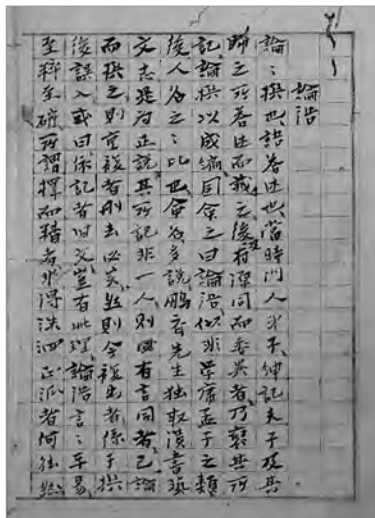 論語
論〻撰也語答述也當時門人弟子紳記夫子及其
師之所答述而載之後有深同而委異者乃裒其所
記論撰以成編因命之曰論語似非學庸孟子之類
後人名之〻比也命名多說鵬齋先生独取漢書藝
文志是為正說其所記非一人則必有言同者已論
而撰之則重複者刪去必矣然則今複出者係于撰
後誤入或曰依記者旧文豈有此理論語言〻平易
至粹至確所謂擇而精者非得洙泗正派者何能然